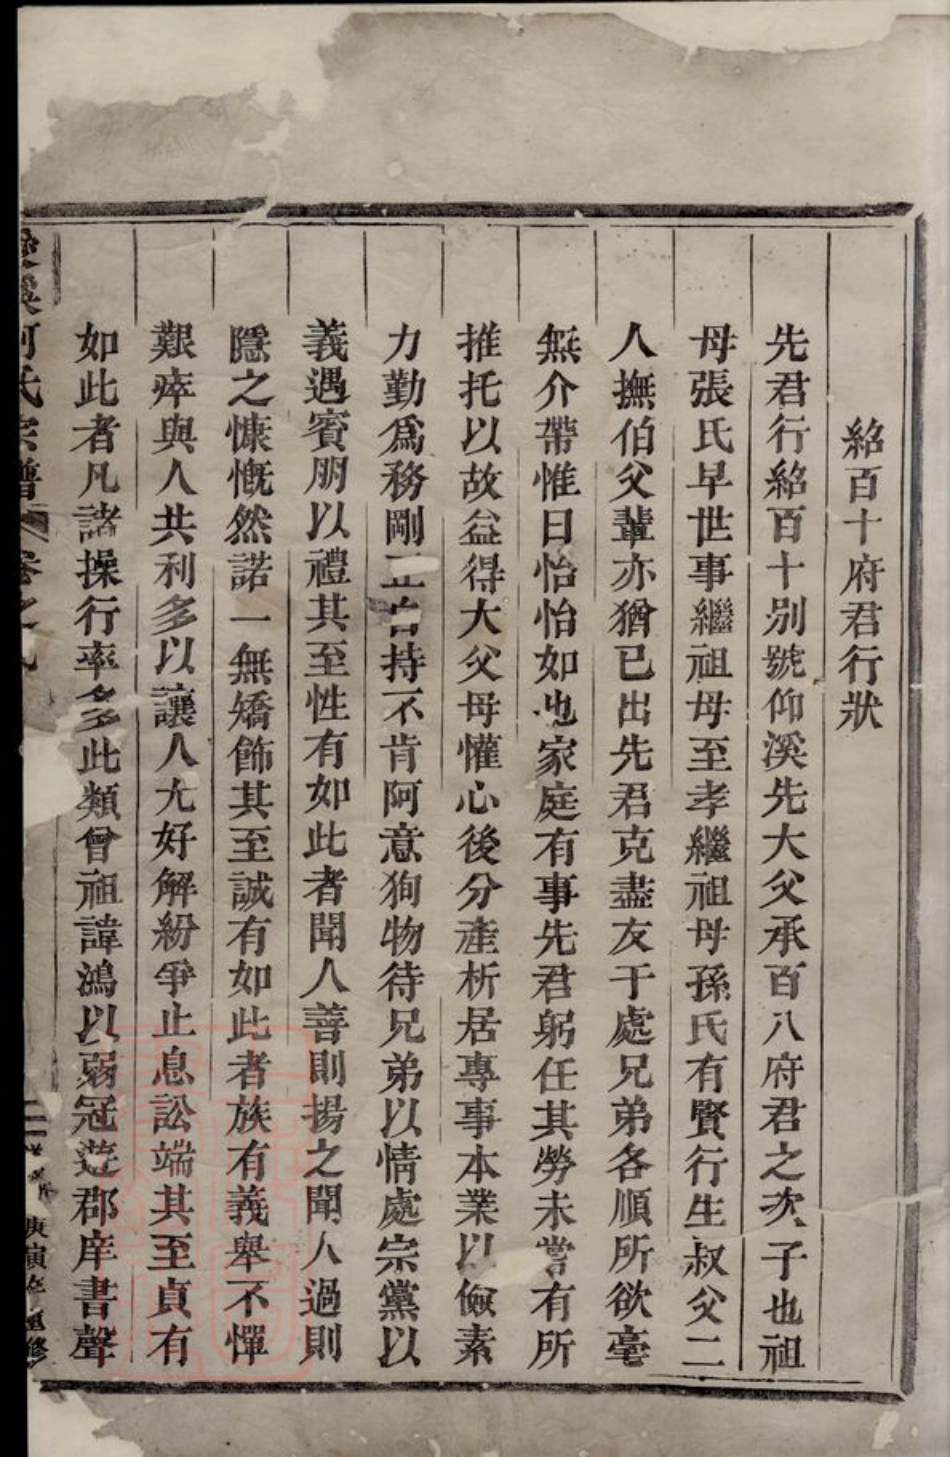 紹百十府君行狀
先君行紹百十别號仰溪先大父承百八府君之次子也祖
母張氏早世事繼祖母至孝繼祖母孫氏有賢行生叔父二
人撫伯父輩亦猶已出先君克盡友于處兄弟各順所欲毫
無介帶惟日怡怡如也家庭有事先君躬任其勞未嘗有所
推托以故益得大父母懽心後分產析居專事本業以儉素
力勤爲務剛正自持不肯阿意狥物待兄弟以情處宗黨以
義遇賓朋以禮其至性有如此者聞人善則揚之聞人過則
隱之慷慨然諾一無矯飾其至誠有如此者族有義舉不憚
艱瘁與人共利多以讓人尤好解紛爭止息訟端其至貞有
如此者凡諸操行率多此類曾祖諱鴻以弱冠遊郡庠書聲
氏宗譜 卷之 二 庚寅年重修